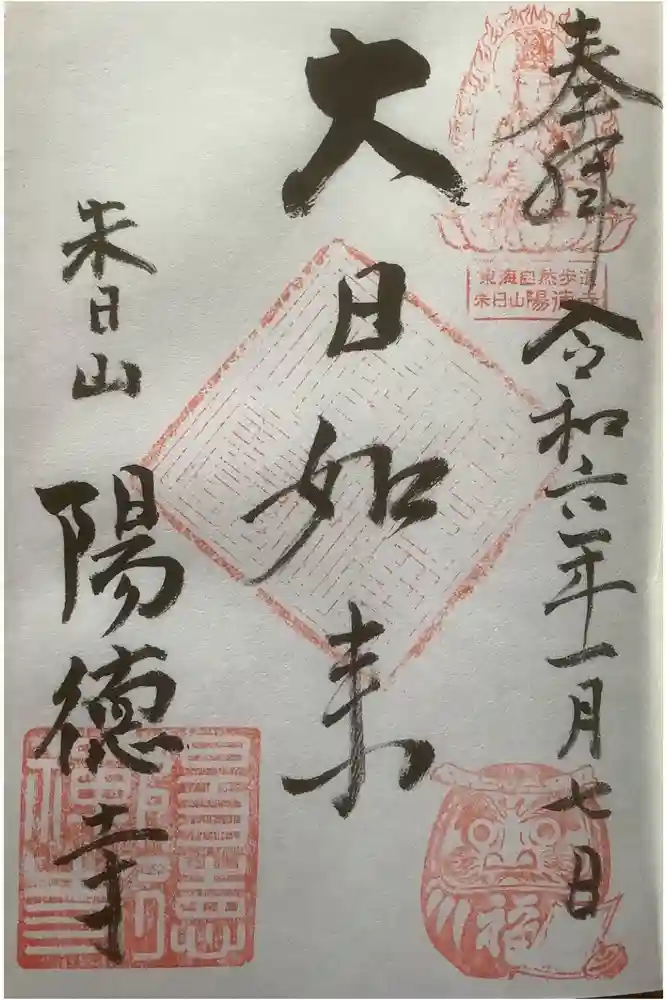 奉拝
令和六年一月七日
東海自然歩道
朱日山陽徳寺
福
大日如来
朱日山
陽徳寺